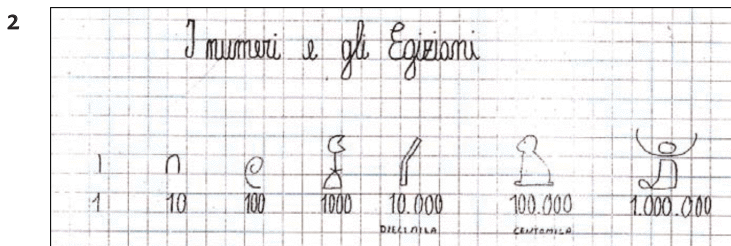 2
I numeri e gli Egiziani
1 10 100 1000 10.000 100.000 1.000.000
DIECIMILA CENTOMILA